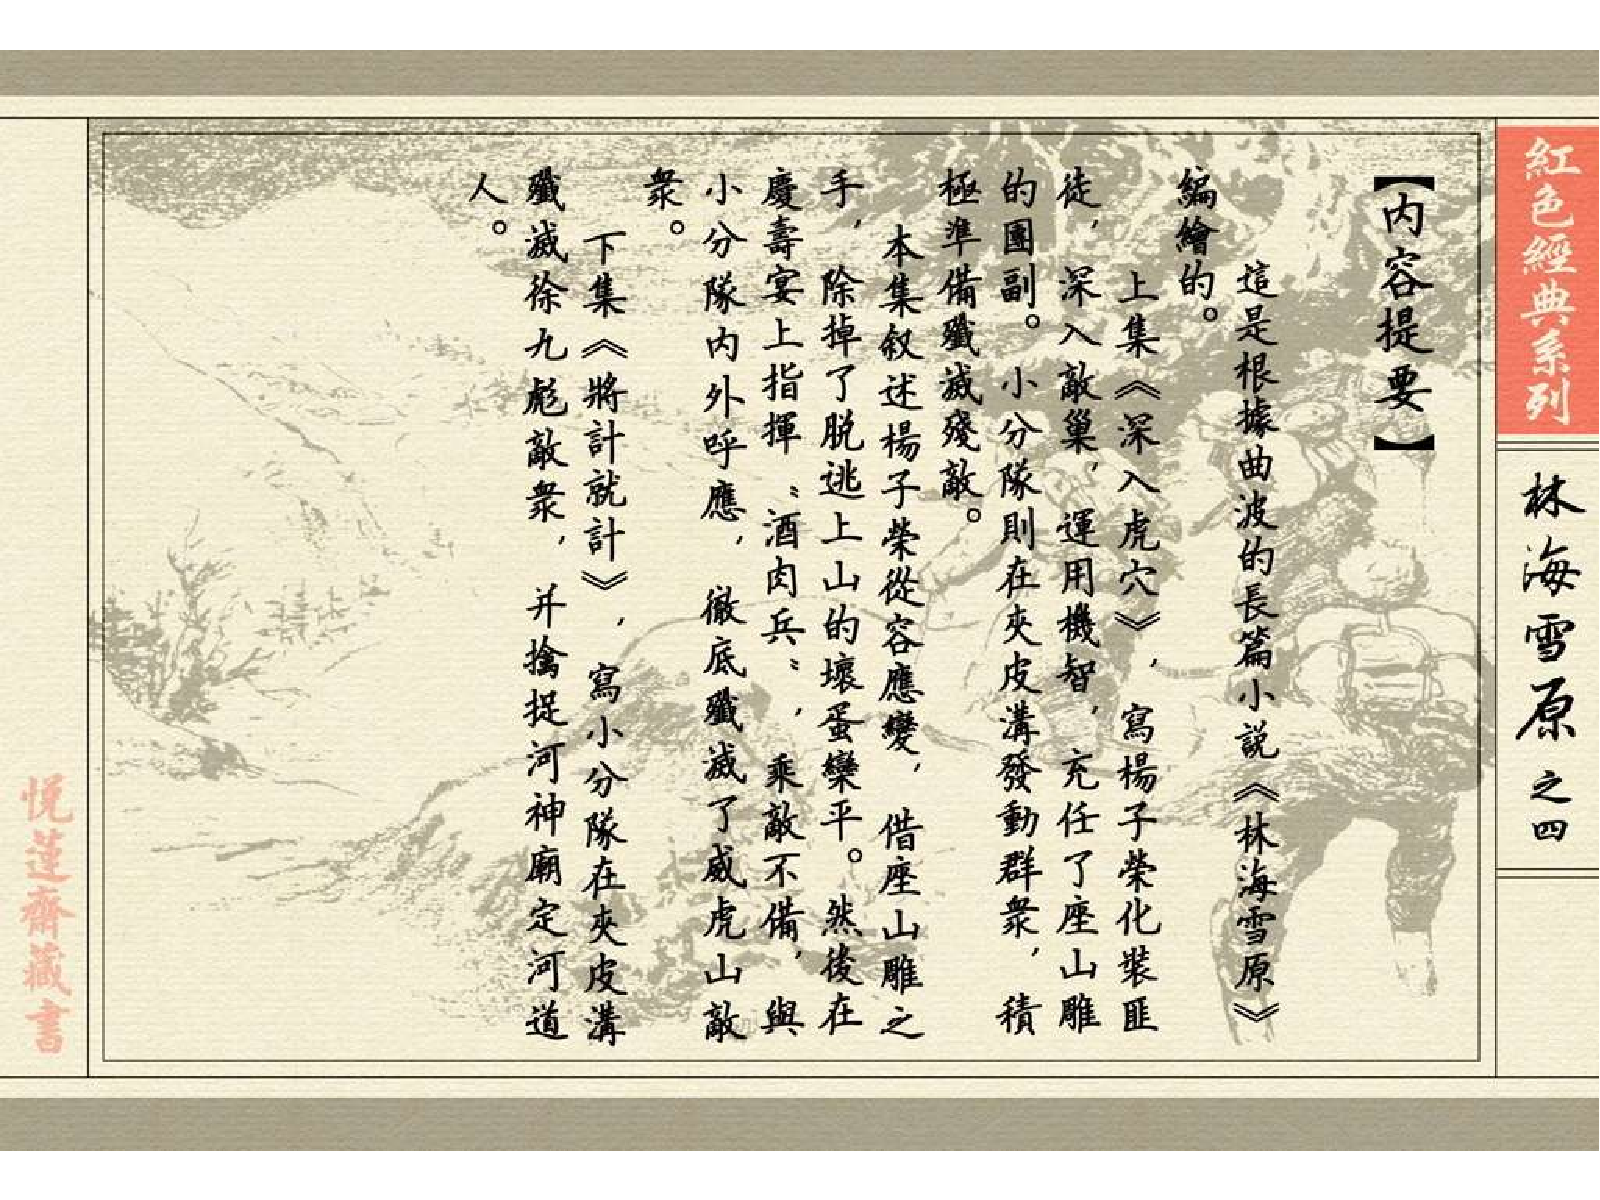 紅色經典系列
林海雪原 之四
【內容提要】
這是根據曲波的長篇小説《林海雪原》
編繪的。
上集《深入虎穴》，寫楊子榮化裝匪
徒，深入敵巢，運用機智，充任了座山雕
的團副。小分隊則在夾皮溝發動群衆，積
極準備殲滅殘敵。
本集叙述楊子榮從容應變，借座山雕之
手，除掉了脱逃上山的壞蛋欒平。然後在
慶壽宴上指揮〝酒肉兵〞，乘敵不備，與
小分隊内外呼應，徹底殲滅了威虎山敵
衆。
下集《將計就計》，寫小分隊在夾皮溝
殲滅徐九彪敵衆，并擒捉河神廟定河道
人。
悦蓮齋藏書